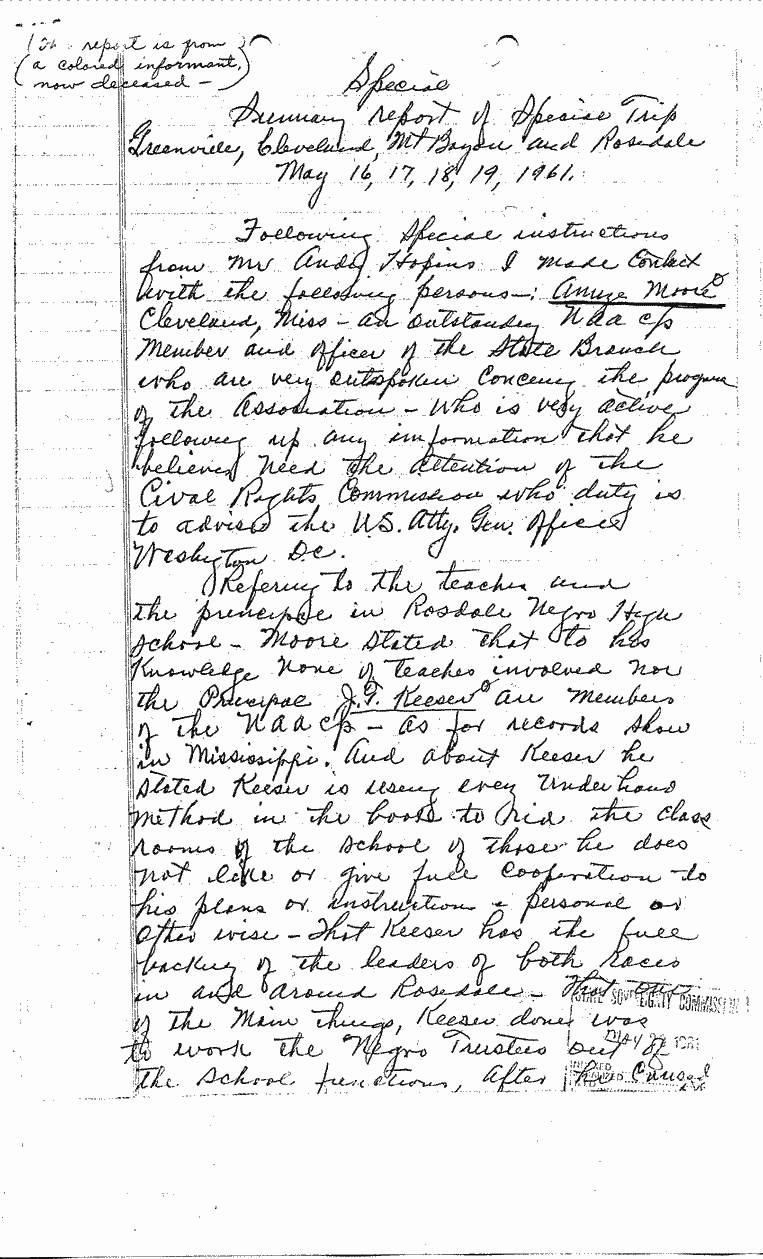 (This report is from
a colored informant,
now deceased —)
Special
Summary report of Special Trip
Greenville, Cleveland, Mt Bayou and Rosedale
May 16, 17, 18, 19, 1961.
Following Special instructions
from Mr Andy Hopins I made Contact
with the following persons—: Amzie Moore
Cleveland, Miss — an outstanding NAACP
Member and officer of the State Branch
who are very outspoken Concerng the progam
of the Association — Who is very active
following up any information that he
believes need the attention of the
Cival Rights Commission who duty is
to advise the U.S. Atty. Gen. Office
Washington D.C.
Refering to the teacher and
the principle in Rosdale Negro High
School — Moore stated that to his
Knowledge None of teaches involved nor
the Principal J.T. Keeser are members
of the NAACP — as for records show
in Mississippi. And about Keeser he
stated Keeser is useing every Underhand
Method in the book to rid the class
rooms of the school of those he does
not like or give full cooperation to
his plans or instruction — personal or
other wise — That Keeser has the full
backing of the leaders of both races
in and around Rosedale — That one
STATE SOVEREIGNTY COMMISSION
of the Main things, Keeser done was
MAY 1961
to work the Negro Trustees out of
the School functions, After he Caused